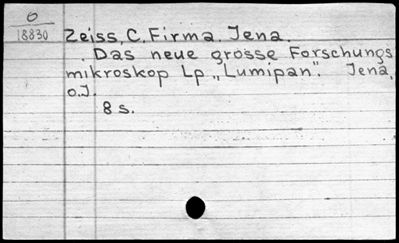 O
18830 Zeiss, C. Firma. Jena.
. Das neue grosse Forschungs
mikroskop Lp „Lumipan". Jena,
o.J.
8 s.